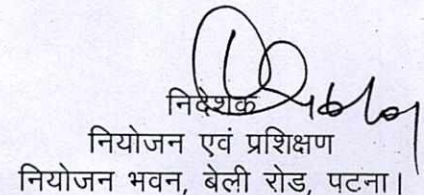 निदेशक
नियोजन एवं प्रशिक्षण
नियोजन भवन, बेली रोड, पटना।